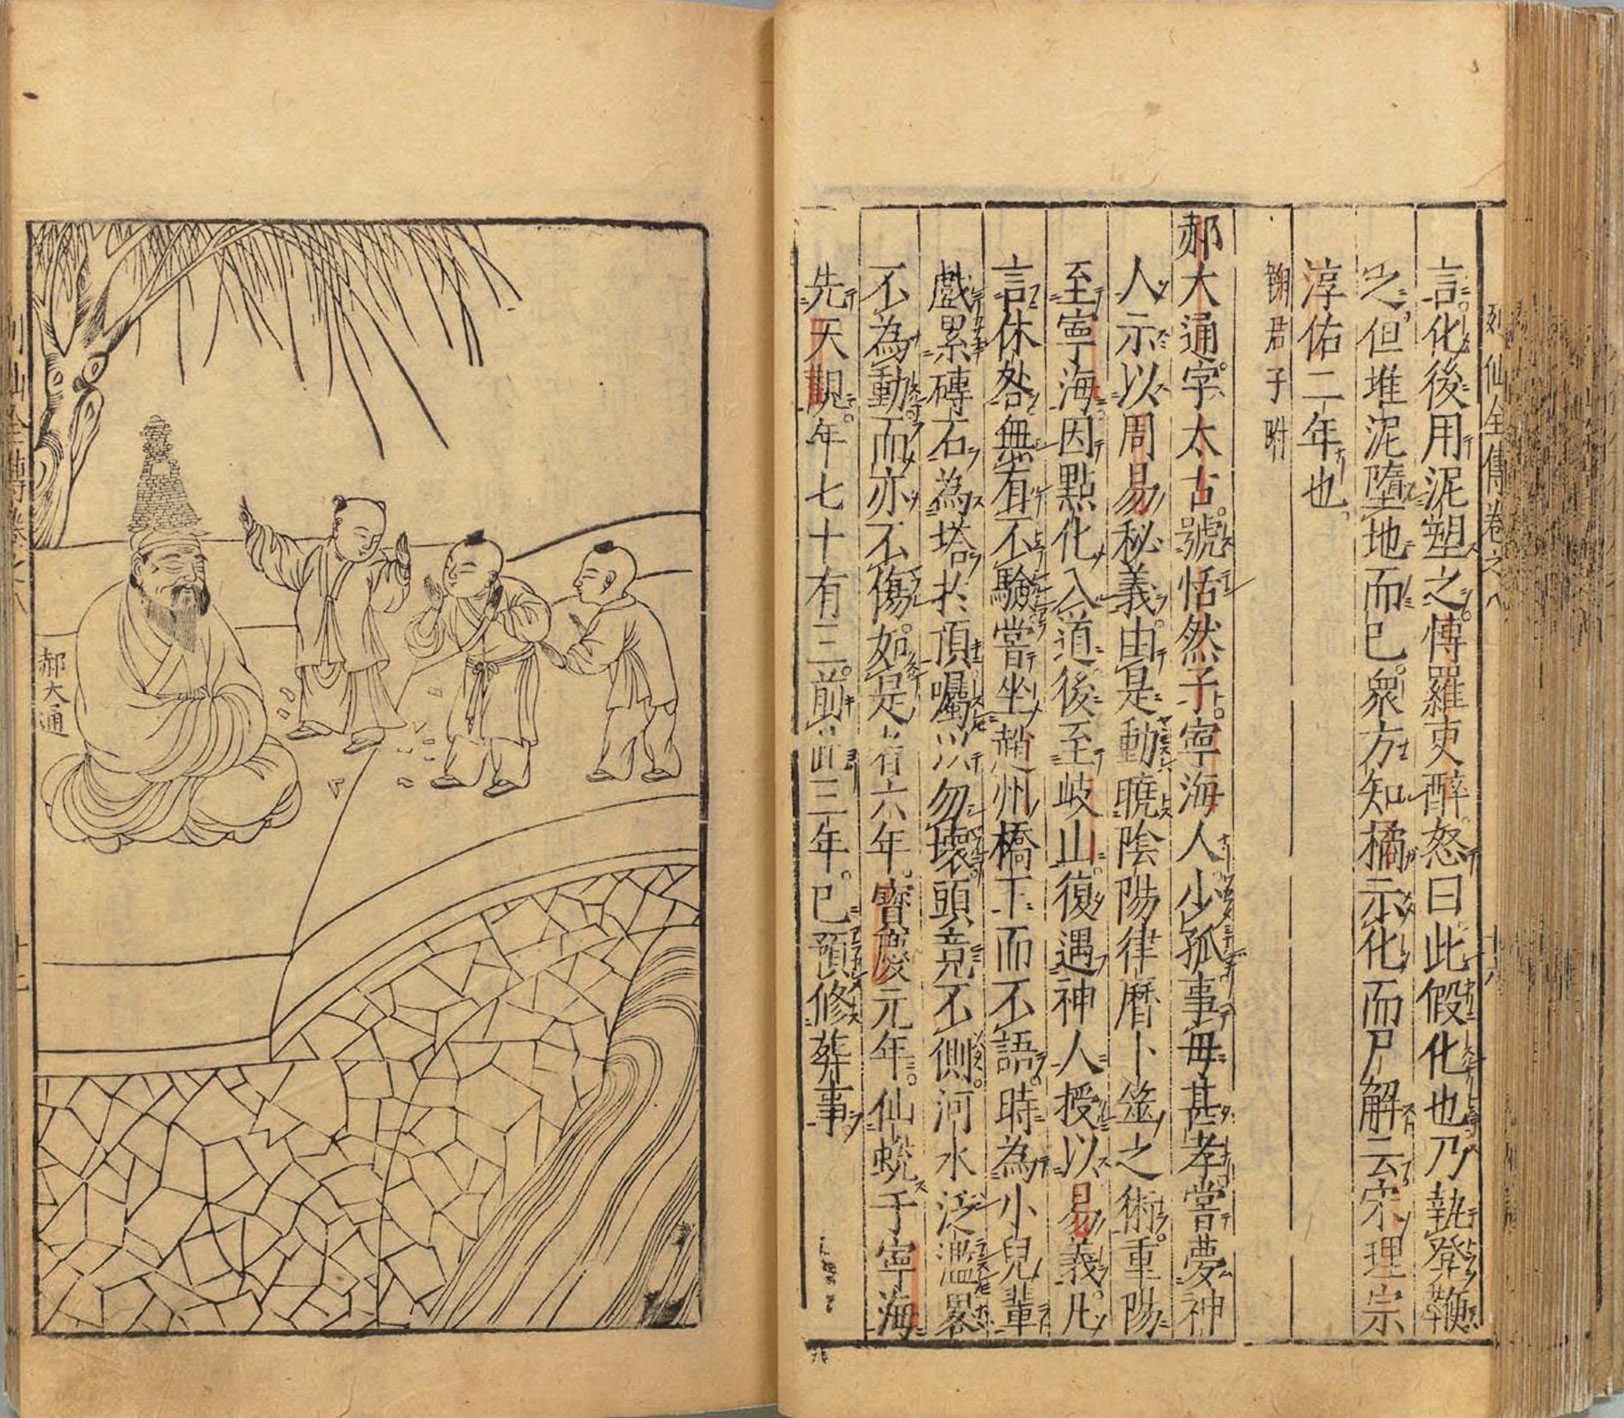 列仙全傳卷之八
十八
言化後用泥塑之慱羅吏醉怒曰此假化也乃執登鞭
之但堆泥墮地而已衆方知橘示化而尸解云宋理宗
淳佑二年也
鞠君子附
郝大通字太古號恬然子寧海人少孤事母甚孝嘗夢神
人示以周易秘義由是動曉陰陽律曆卜筮之術重陽
至寧海因點化入道後至岐山復遇神人授以易義凡
言休咎無有不驗嘗坐趙州橋下而不語時為小兒輩
戲累磚石為塔於頂囑以勿壞頭竟不側河水泛濫畧
不為動而亦不傷如是者六年寶慶元年仙蛻于寧海
先天觀年七十有三前此三年已預修葬事
郝大通
列仙全傳卷之八